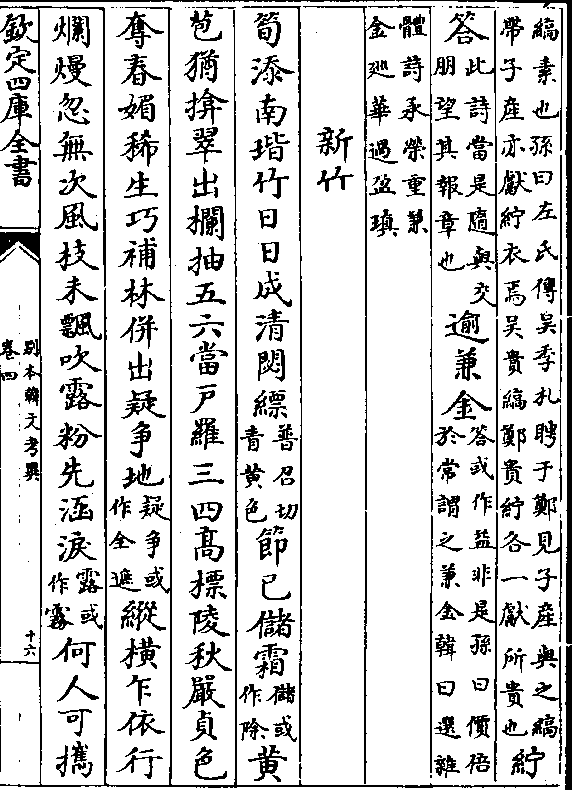 縞素也孫曰左氏傳吳季札聘于鄭見子產與之縞
帶子產亦獻紵衣焉吳貴縞鄭貴紵各一獻所貴也紵
答此詩當是隨與交朋望其報章也逾兼金答或作益非是孫曰價倍於常謂之兼金韓曰選雜
體詩承榮重兼
金廵華過盈瑱
新竹
筍添南堦竹日日成清閟縹普召切青黄色節已儲霜儲或作除黄
苞猶揜翠出欄抽五六當戸羅三四高標陵秋嚴貞色
奪春媚稀生巧補林併出疑争地疑争或作全進縱橫乍依行
爛熳忽無次風枝未飄吹露粉先涵淚露或作霧何人可攜
欽定四庫全書
别本韓文考異
卷四
十六